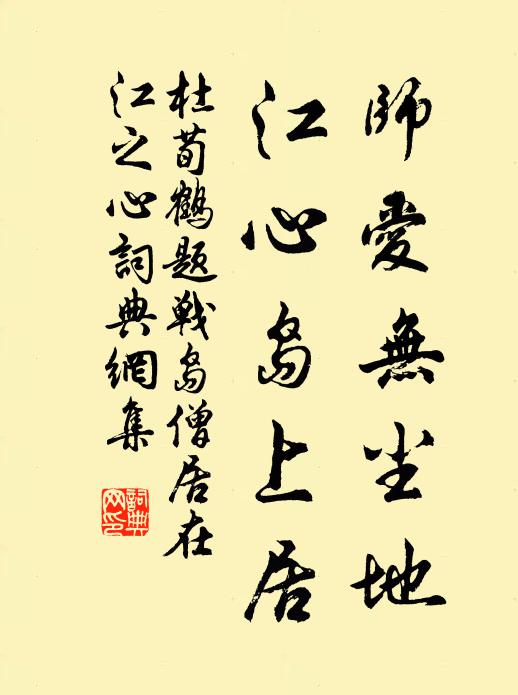 師愛無尘地
江心島上居
杜荀鶴题戰島僧居在
江之心詞典網集
詞典
网印